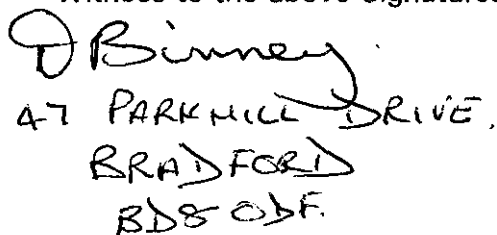 Witness to the above signatures
D Binney.
47 PARKHILL DRIVE,
BRADFORD
BD8 0DF.